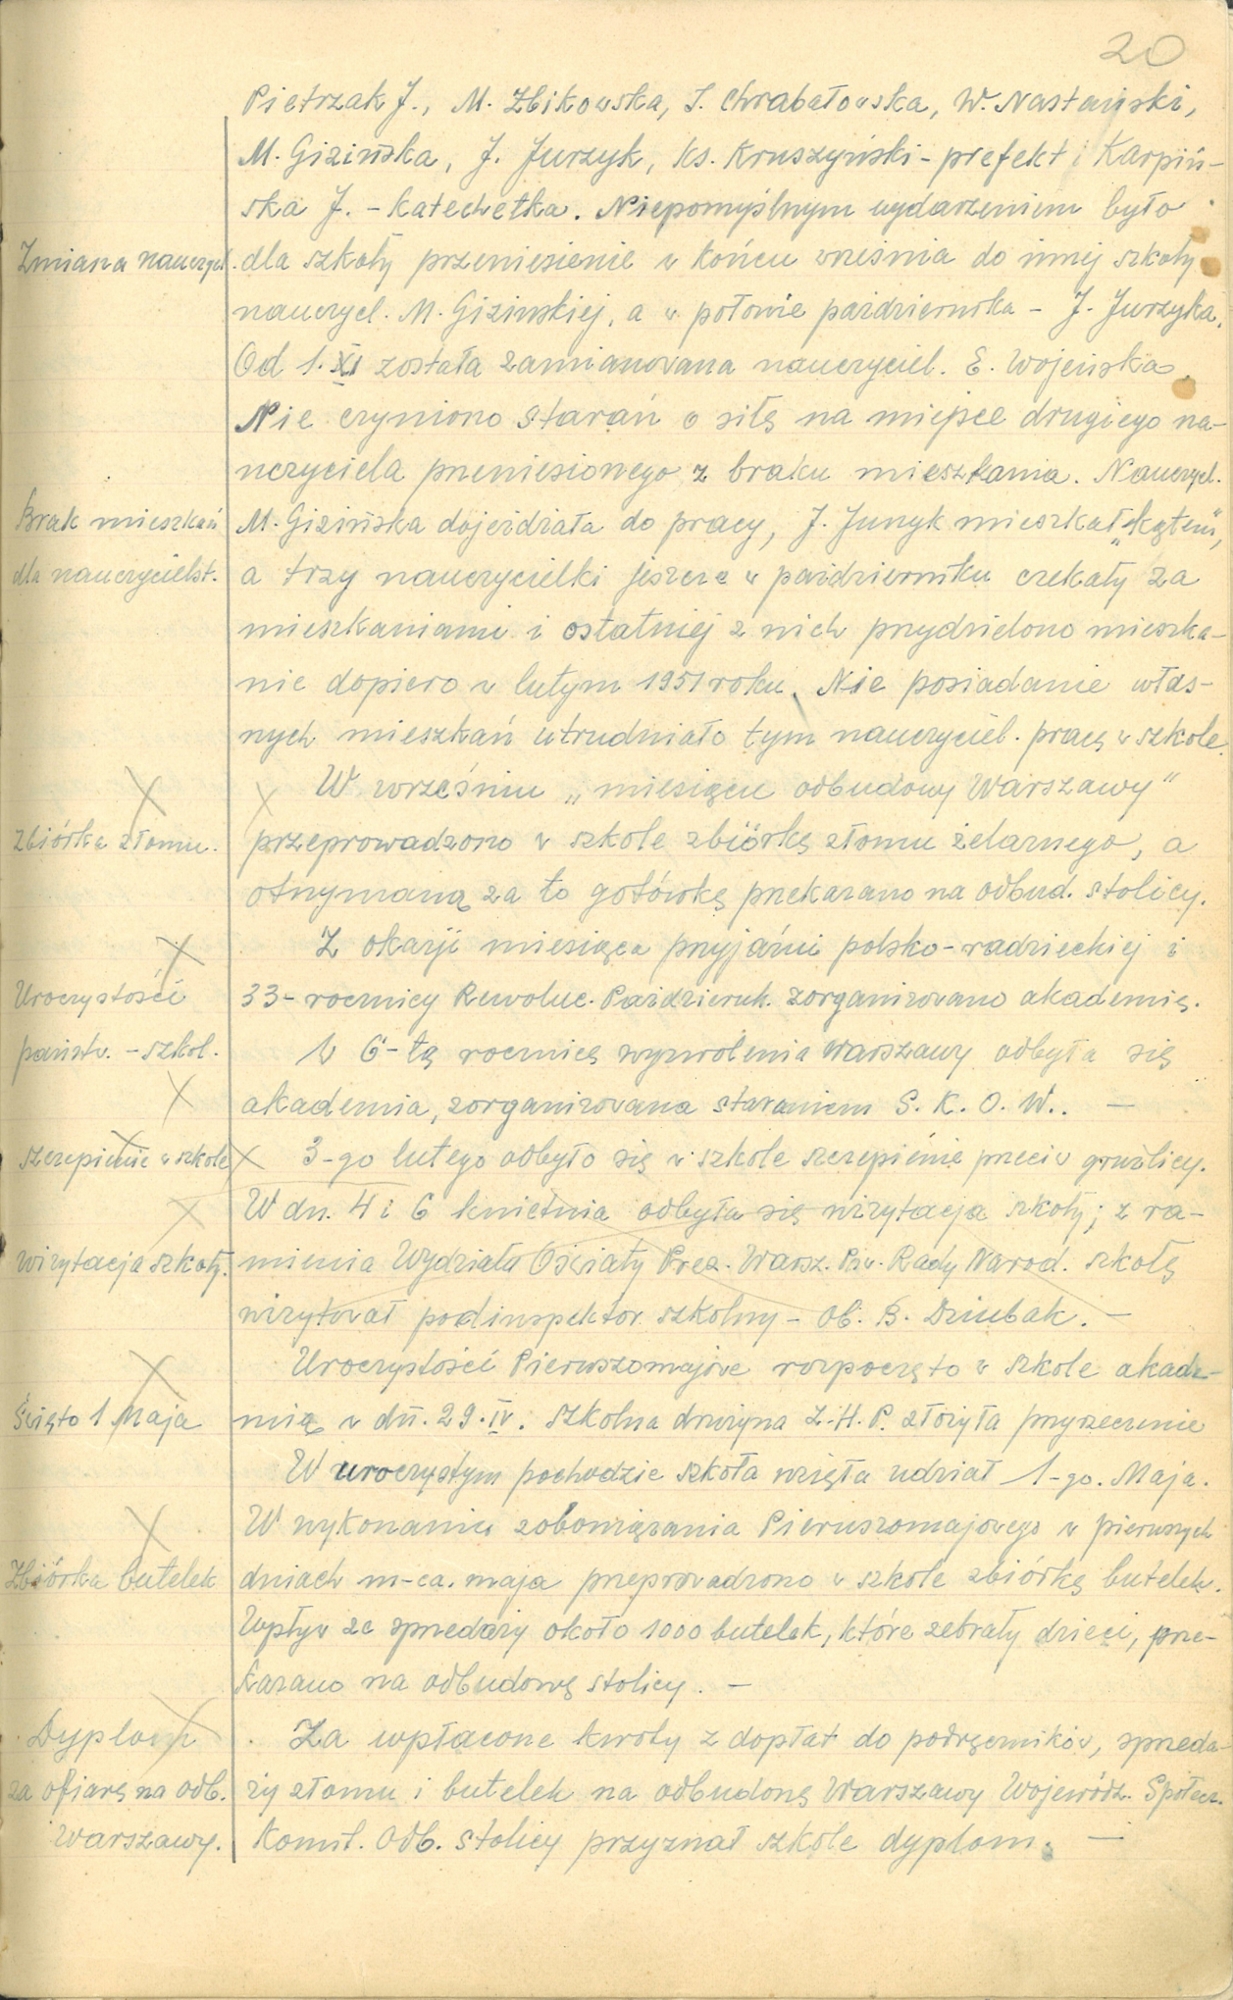 20
Pietrzak J., M. Żbikowska, S. Chrabałowska, W. Nastański,
M. Gizińska, J. Jurzyk, ks. Kruszyński - prefekt i Karpiń-
ska J. - katechetka. Niepomyślnym wydarzeniem było
Zmiana nauczyciel. dla szkoły przeniesienie w końcu września do innej szkoły
nauczyciel. M. Gizińskiej, a w połowie października - J. Jurzyka.
Od 1. XI została zamianowana nauczyciel. E. Wojeńska.
Nie czyniono starań o siłę na miejsce drugiego na-
uczyciela przeniesionego z braku mieszkania. Nauczyciel.
Brak mieszkań M. Gizińska dojeżdżała do pracy, J. Jurzyk mieszkał „kątem",
dla nauczycielst. a trzy nauczycielki jeszcze w październiku czekały za
mieszkaniami i ostatniej z nich przydzielono mieszka-
nie dopiero w lutym 1951 roku. Nie posiadanie włas-
nych mieszkań utrudniało tym nauczyciel. pracę w szkole.
W wrześniu „miesiącu odbudowy Warszawy"
Zbiórka złomu. przeprowadzono w szkole zbiórkę złomu żelaznego, a
otrzymaną za to gotówkę przekazano na odbud. stolicy.
Z okazji miesiąca przyjaźni polsko-radzieckiej i
Uroczystości 33-rocznicy Rewoluc. Październ. zorganizowano akademię.
państw. - szkol. W 6-tą rocznicę wyzwolenia Warszawy odbyła się
akademia, zorganizowana staraniem S. K. O. W.. -
Szczepienie w szkole 3-go lutego odbyło się w szkole szczepienie przeciw gruźlicy.
W dn. 4 i 6 kwietnia odbyła się wizytacja szkoły; z ra-
Wizytacja szkoły. mienia Wydziału Oświaty Prez. Warsz. Pow. Rady Narod. szkołę
wizytował podinspektor szkolny - ob. B. Dziubak. -
Uroczystości Pierwszomajowe rozpoczęto w szkole akade-
Święto 1 Maja mią w dn. 29. IV. Szkolna drużyna Z. H. P. złożyła przyrzeczenie
W uroczystym pochodzie szkoła wzięła udział 1-go. Maja.
W wykonaniu zobowiązania Pierwszomajowego w pierwszych
Zbiórka butelek dniach m-ca. maja przeprowadzono w szkole zbiórkę butelek.
Wpływ ze sprzedaży około 1000 butelek, które zebrały dzieci, prze-
kazano na odbudowę stolicy. -
Dyplom Za wpłacone kwoty z dopłat do podręczników, sprzeda-
za ofiarę na odb. ży złomu i butelek na odbudowę Warszawy Wojewódz. Społecz.
Warszawy. Komit. Odb. Stolicy przyznał szkole dyplom. -